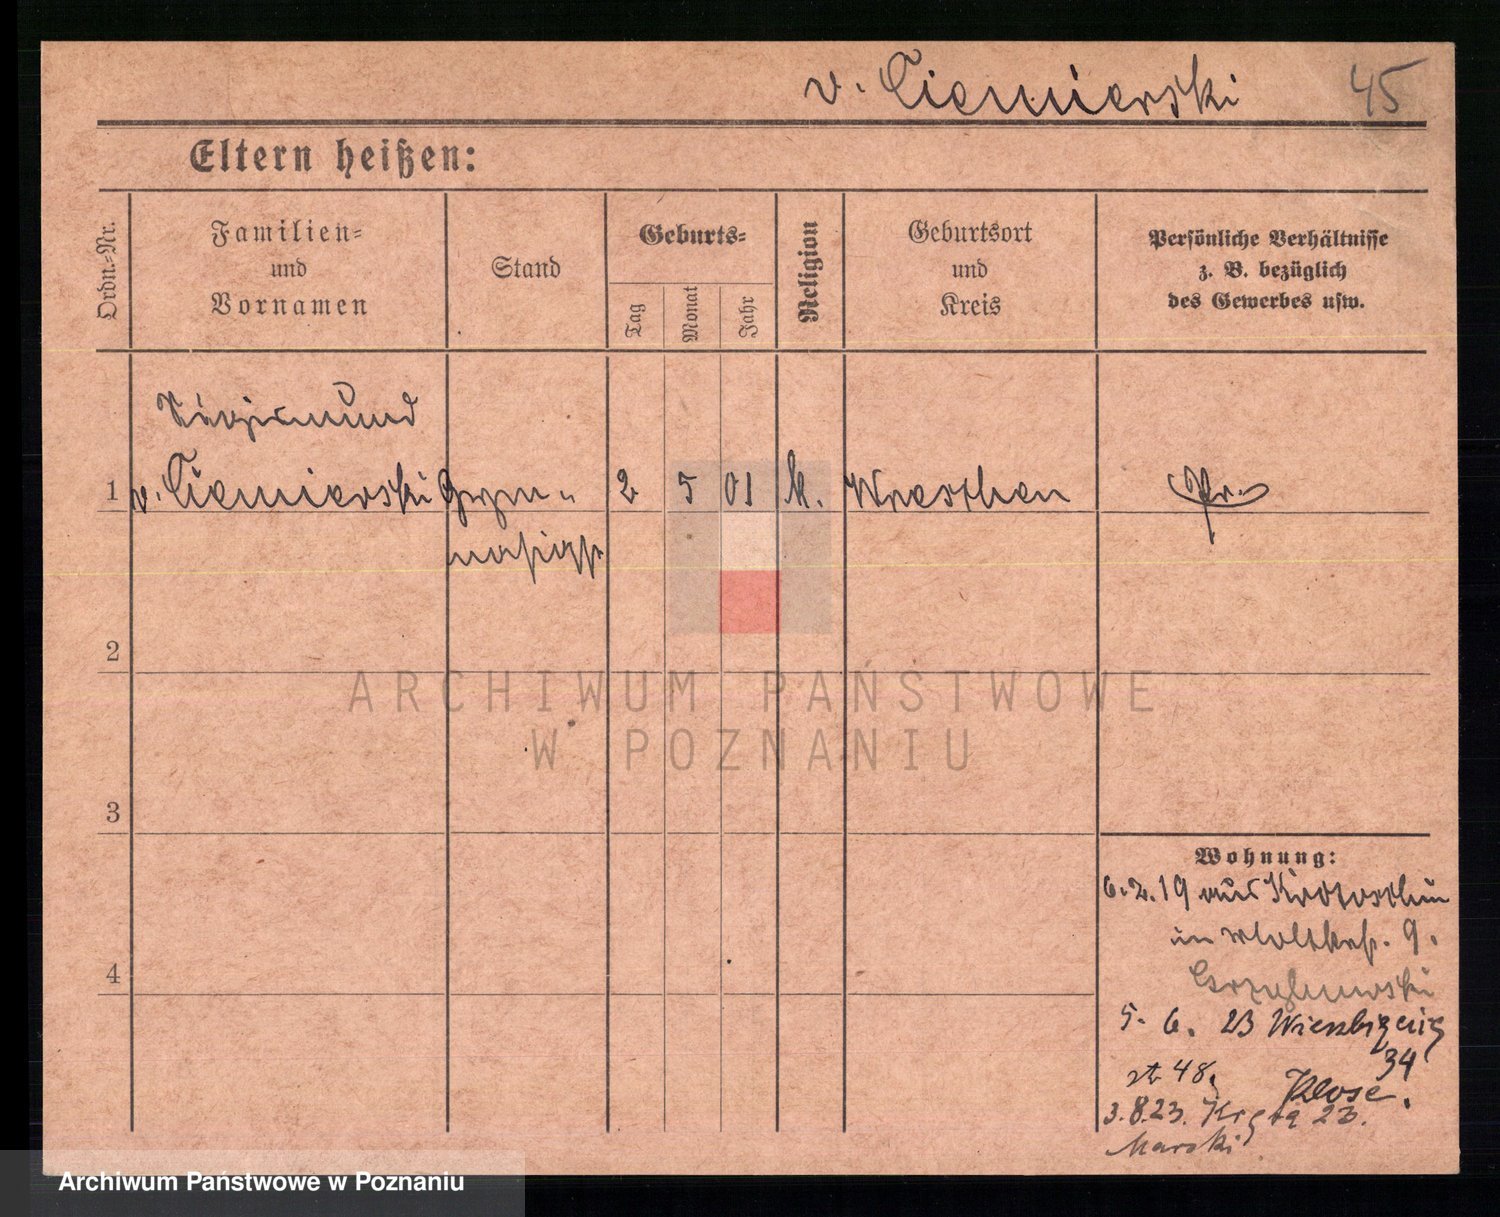 v. Ciemierski 45
Eltern heißen:
Ordn.-Nr.
Familien-
und
Vornamen
Stand
Geburts-
Tag
Monat
Jahr
Religion
Geburtsort
und
Kreis
Persönliche Verhältnisse
z. B. bezüglich
des Gewerbes usw.
Sigismund
1 v. Ciemierski Gym- 2 5 01 k. Wreschen Pr.
nasiast
2
3
4
Wohnung:
6.2.19 aus Krotoschin
in Moltkestr. 9.
5. 6. 23
34
48. Klose.
3.8.23. 23.
Marski
ARCHIWUM PAŃSTWOWE
W POZNANIU
Archiwum Państwowe w Poznaniu